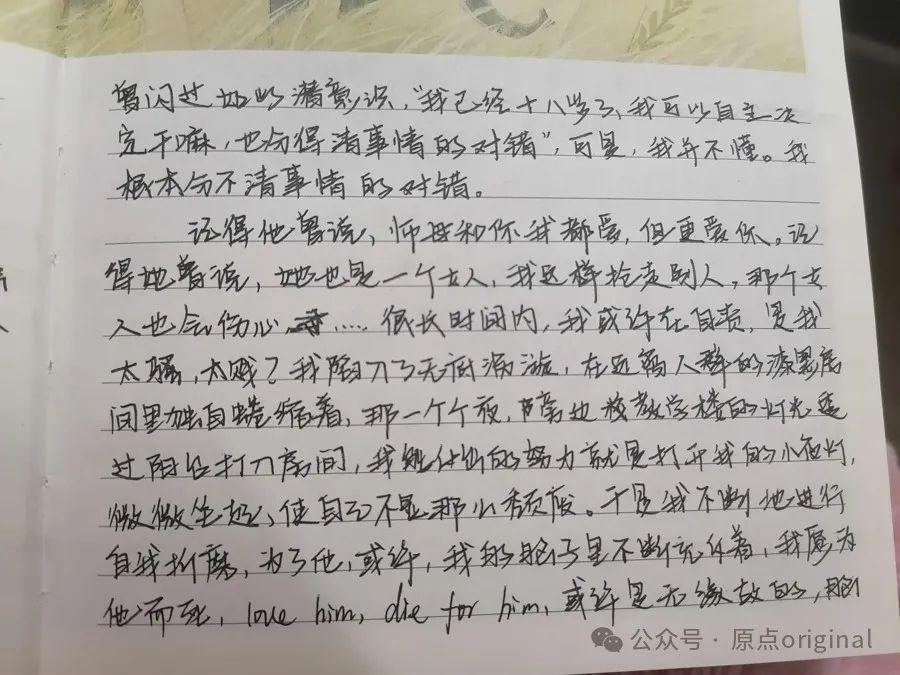 曾闪过如此潜意识，“我已经十八岁了，我可以自主决
定干嘛，也分得清事情的对错”，可是，我并不懂。我
根本分不清事情的对错。
记得他曾说，师母和你我都爱，但更爱你。记
得她曾说，她也是一个女人，我这样抢走别人，那个女
人也会伤心……很长时间内，我或许在自责，是我
太骚，太贱？我陷入了无底漩涡，在远离人群的漆黑房
间里独自蜷缩着，那一个个夜，旁边栋教学楼的灯光透
过阳台打入房间，我能做的努力就是打开我的小夜灯，
微微坐起，使自己不显那么颓废。于是我不断地进行
自我折磨，为了他，或许，我的脑子里不断充斥着，我愿为
他而死，love him, die for him, 或许是无缘故的，脑
公众号·原点original